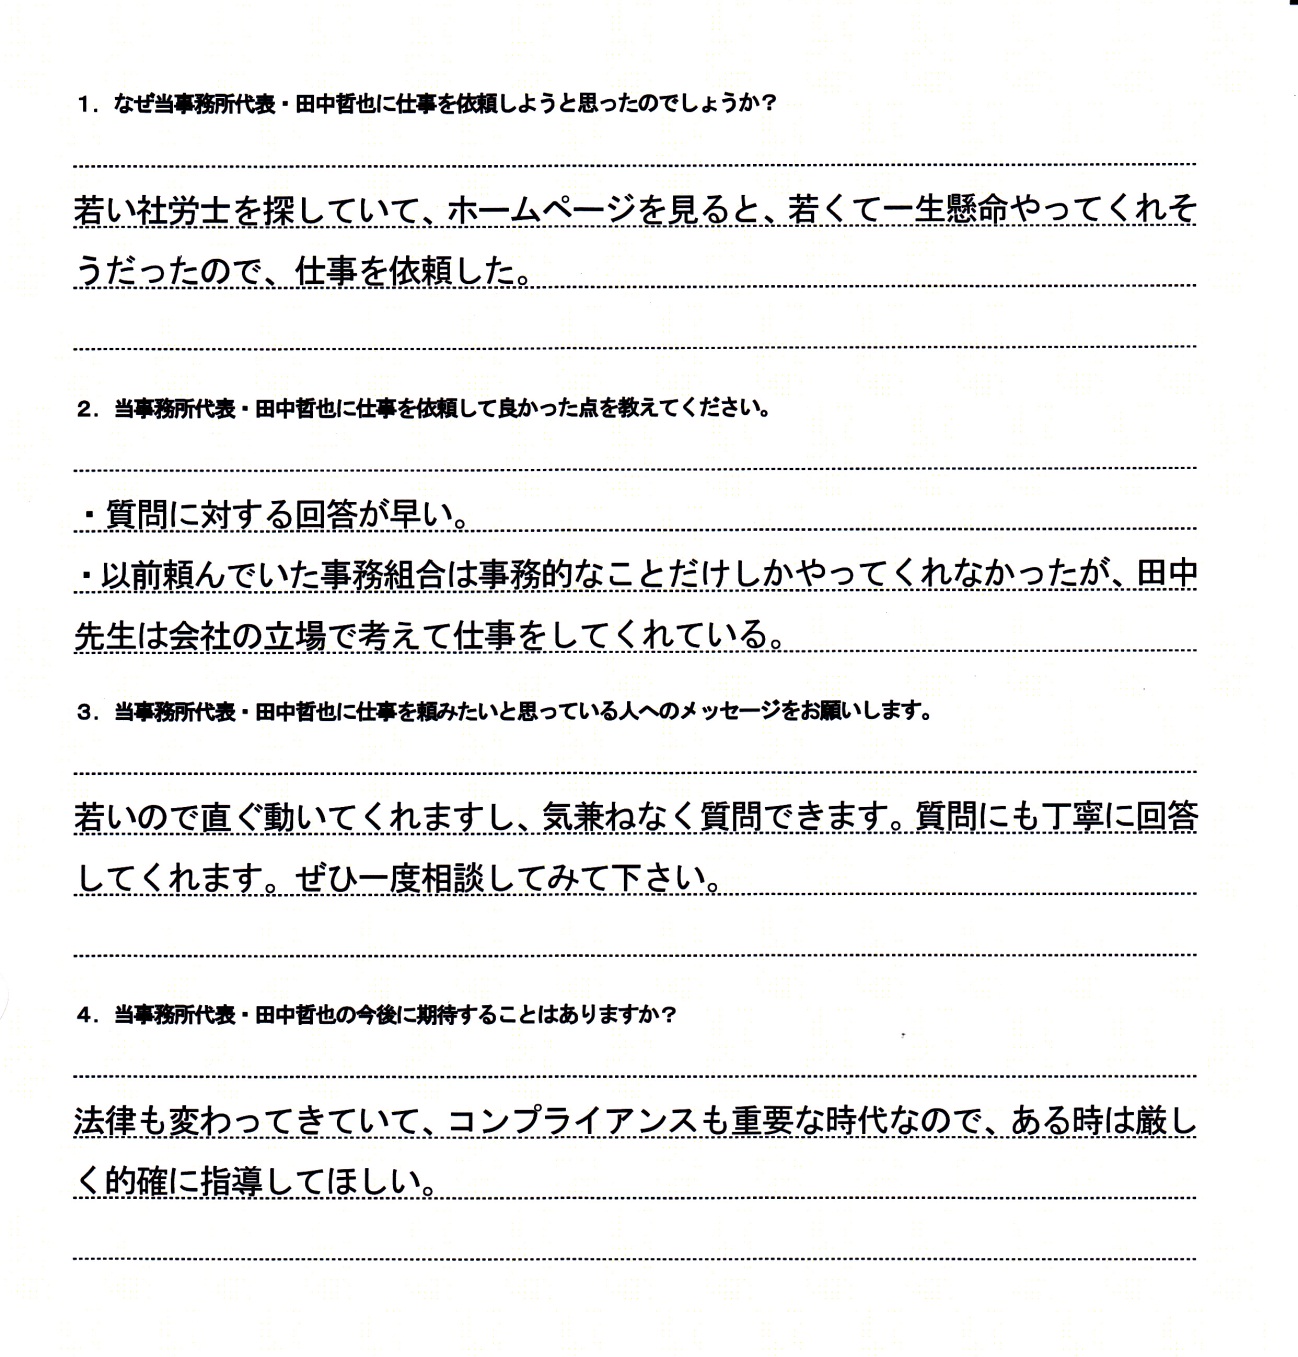 １．なぜ当事務所代表・田中哲也に仕事を依頼しようと思ったのでしょうか？
若い社労士を探していて、ホームページを見ると、若くて一生懸命やってくれそ
うだったので、仕事を依頼した。
２．当事務所代表・田中哲也に仕事を依頼して良かった点を教えてください。
・質問に対する回答が早い。
・以前頼んでいた事務組合は事務的なことだけしかやってくれなかったが、田中
先生は会社の立場で考えて仕事をしてくれている。
３．当事務所代表・田中哲也に仕事を頼みたいと思っている人へのメッセージをお願いします。
若いので直ぐ動いてくれますし、気兼ねなく質問できます。質問にも丁寧に回答
してくれます。ぜひ一度相談してみて下さい。
４．当事務所代表・田中哲也の今後に期待することはありますか？
法律も変わってきていて、コンプライアンスも重要な時代なので、ある時は厳し
く的確に指導してほしい。